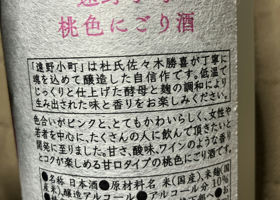 遠野小町
桃色にごり酒
「遠野小町」は杜氏佐々木勝喜が丁寧に
魂を込めて醸造した自信作です。低温で
じっくりと仕上げた酵母と麹の調和により
生み出された味と香りをお楽しみください。
色合いがピンクと、とてもかわいらしく、女性や
若者を中心に、たくさんの人に飲んで頂きたいと
開発に至りました。甘さ、酸味、ワインのような香り
とコクが楽しめる甘口タイプの桃色にごり酒です。
●名称 日本酒 ●原材料名 米(国産)、米麹(国
産米)、醸造アルコール ●アルコール分 10%